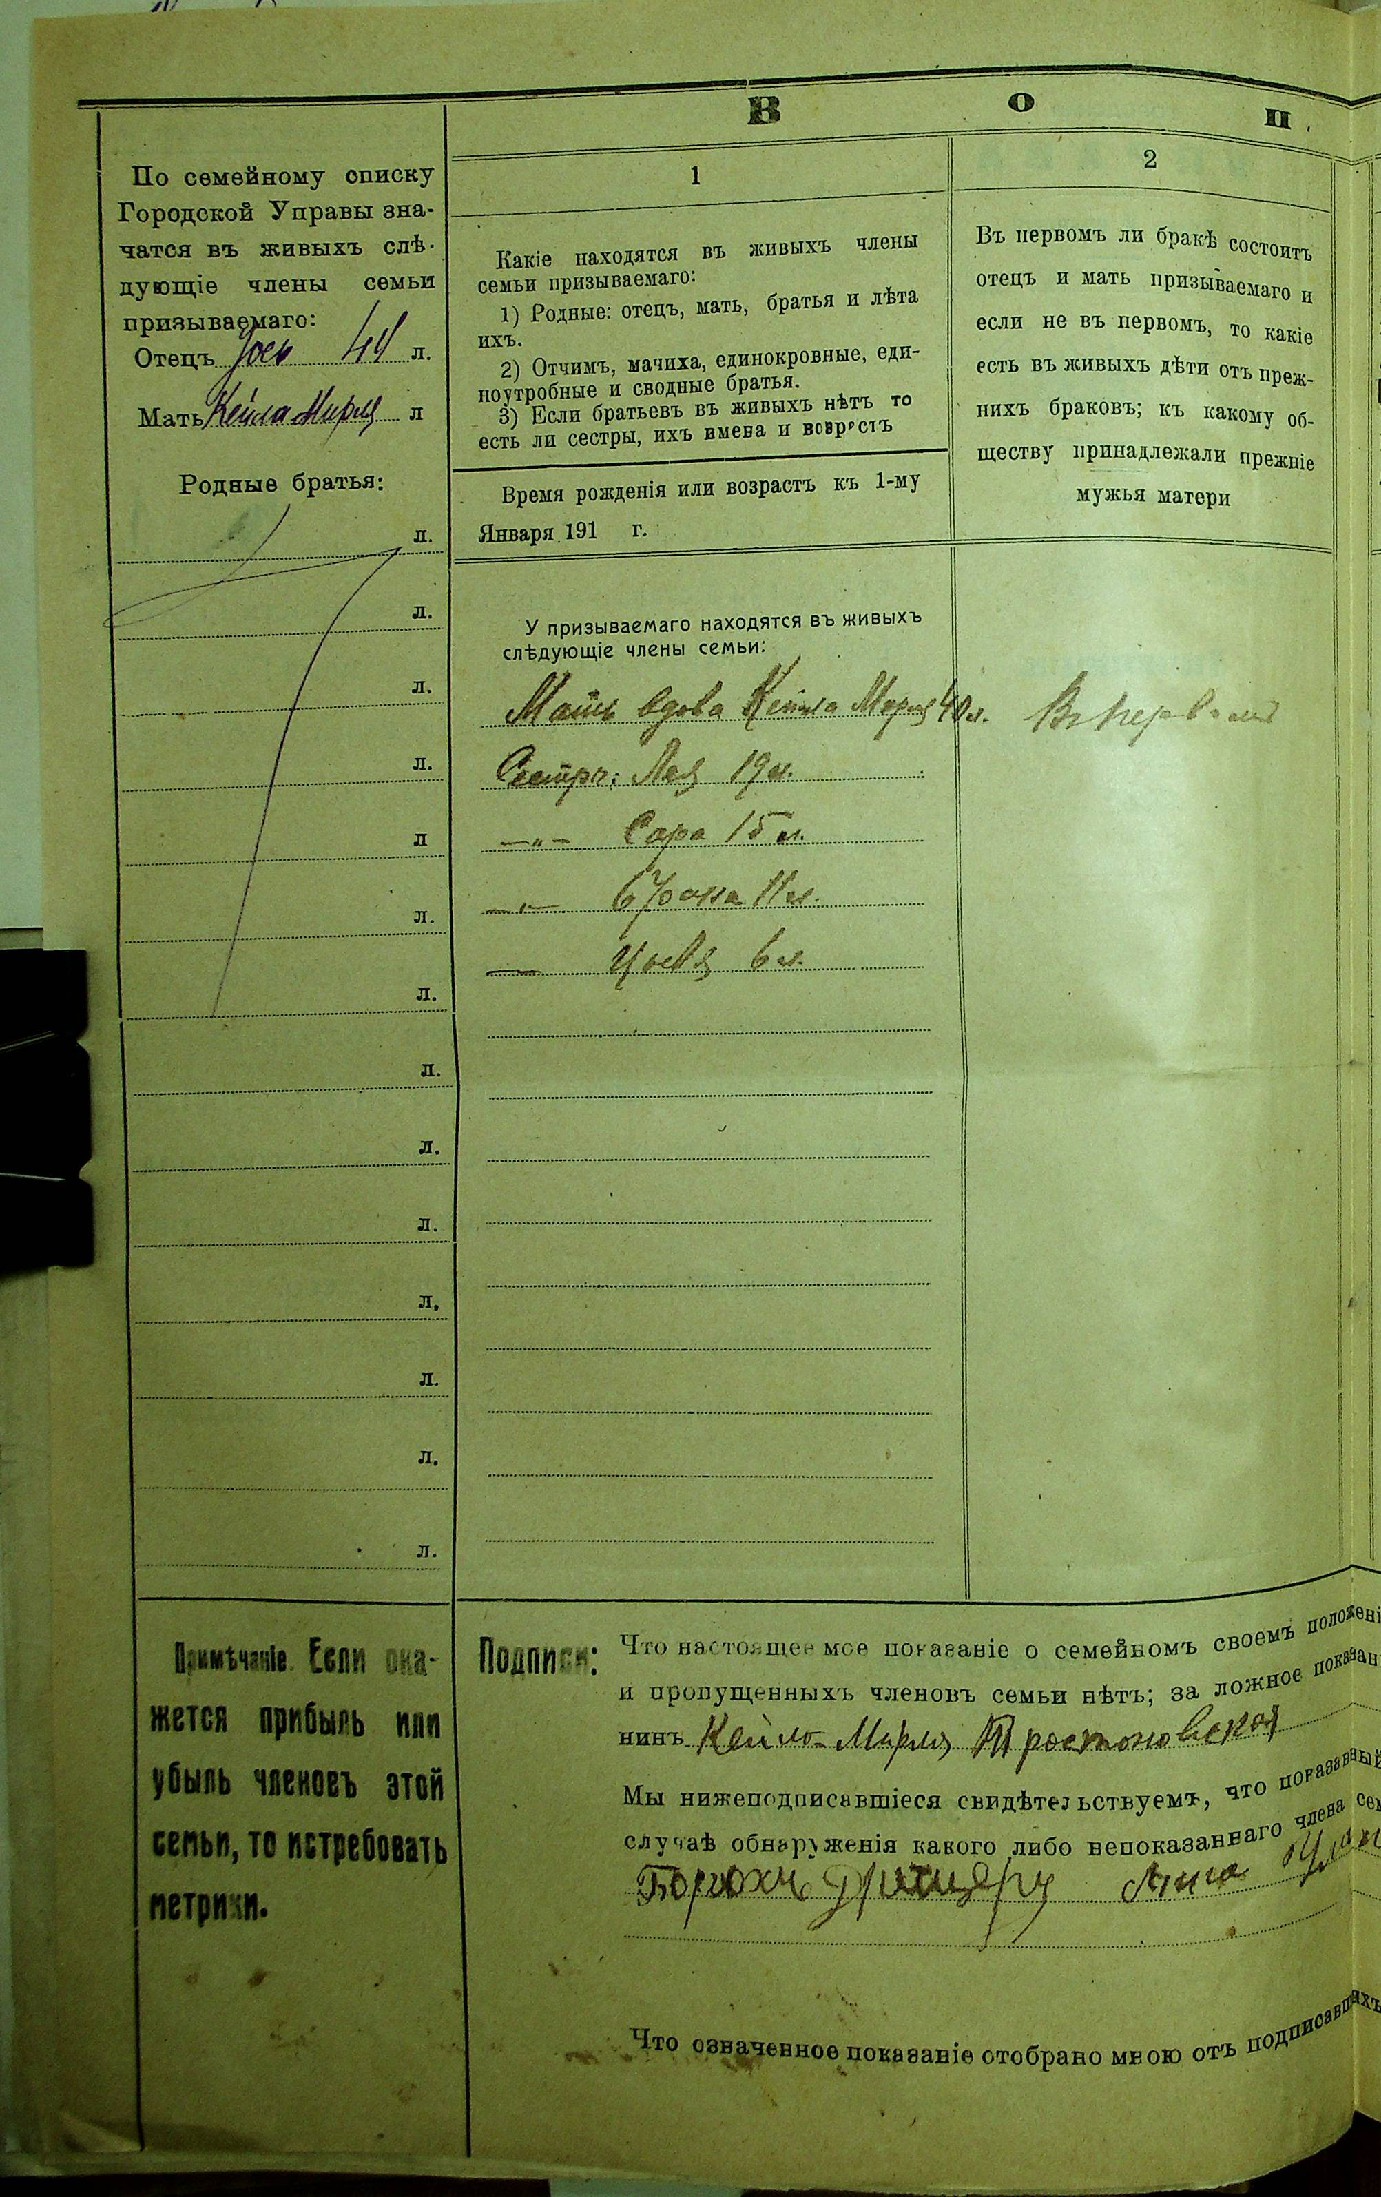 В о п
По семейному списку
Городской Управы зна-
чатся въ живыхъ слѣ-
дующіе члены семьи
призываемаго:
Отецъ 44 л.
Мать Кейла Мирля л
Родные братья:
л.
л.
л.
л.
л
л.
л.
л.
л.
л.
л.
л.
л.
л.
1
Какіе находятся въ живыхъ члены
семьи призываемаго:
1) Родные: отецъ, мать, братья и лѣта
ихъ.
2) Отчимъ, мачиха, единокровные, еди-
ноутробные и сводные братья.
3) Если братьевъ въ живыхъ нѣтъ то
есть ли сестры, ихъ имена и возрастъ
Время рожденія или возрастъ къ 1-му
Января 191 г.
У призываемаго находятся въ живыхъ
слѣдующіе члены семьи:
Мать вдова Кейла Мирля 40 л.
Сестры: Лея 19 л.
—„— Сара 15 л.
—„— 11 л.
— 6 л.
2
Въ первомъ ли бракѣ состоитъ
отецъ и мать призываемаго и
если не въ первомъ, то какіе
есть въ живыхъ дѣти отъ преж-
нихъ браковъ; къ какому об-
ществу принадлежали прежніе
мужья матери
Въ первомъ
Примѣчаніе. Если ока-
жется прибыль или
убыль членовъ этой
семьи, то истребовать
метрики.
Подписи:
Что настоящее мое показаніе о семейномъ своемъ положені
и пропущенныхъ членовъ семьи нѣтъ; за ложное показан
нинъ Кейло-Мирля Тростоновская
Мы нижеподписавшіеся свидѣтельствуемъ, что показанный
случаѣ обнаруженія какого либо непоказаннаго члена сем
Борохъ
Что означенное показаніе отобрано мною отъ подписавшихъ